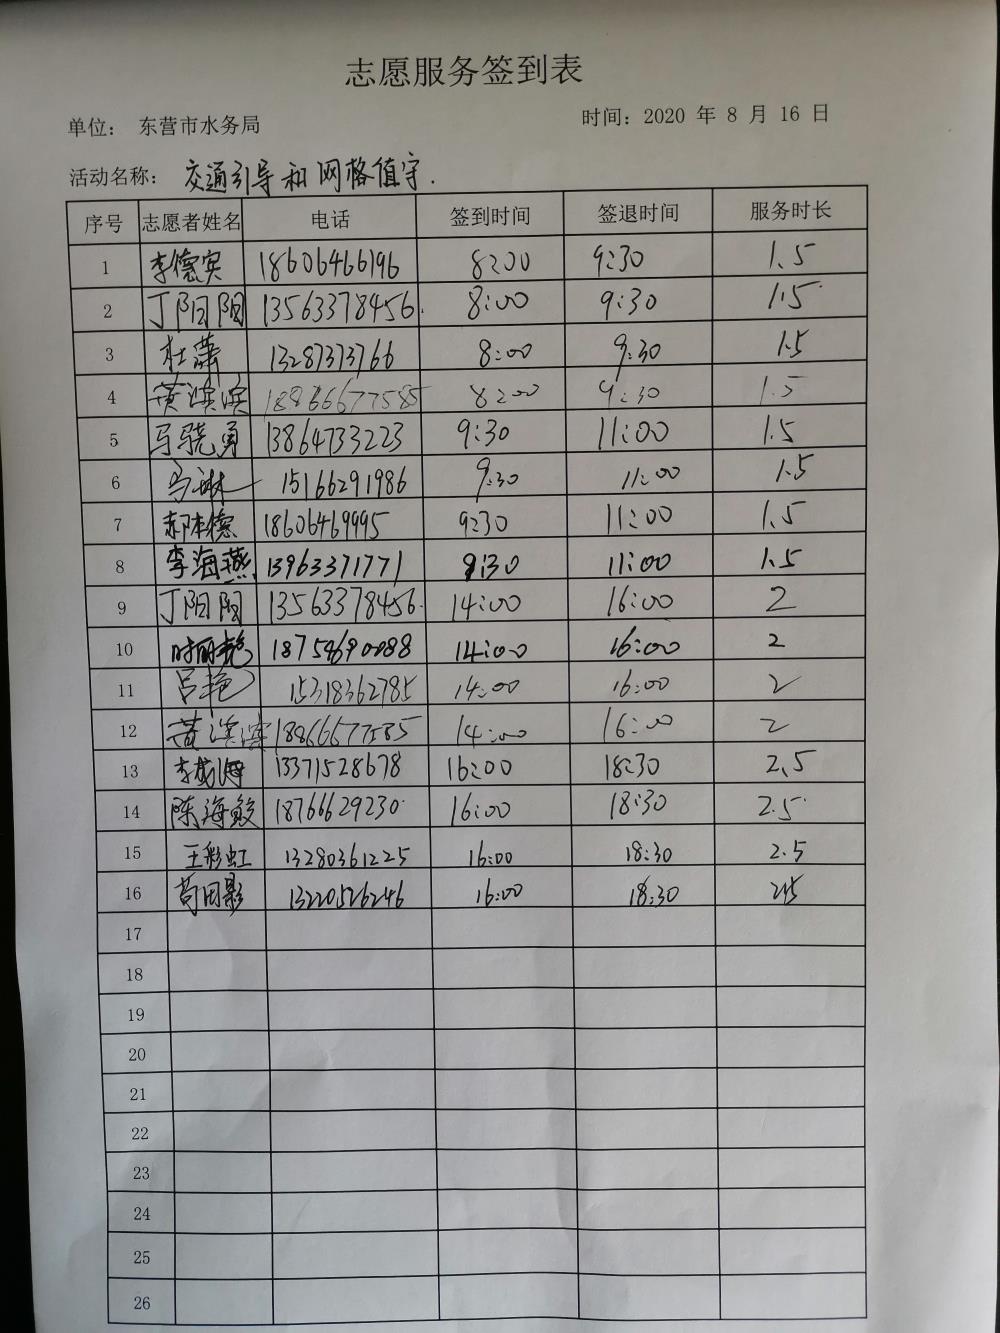 志愿服务签到表
单位： 东营市水务局 时间：2020 年 8 月 16 日
活动名称： 交通引导和网格值守.
序号 志愿者姓名 电话 签到时间 签退时间 服务时长
1 李德实 18606466196 8:00 9:30 1.5
2 丁阳阳 13563378456 8:00 9:30 1.5
3 杜潇 13287373766 8:00 9:30 1.5
4 黄滨滨 18866677585 8:00 9:30 1.5
5 马骁勇 13864733223 9:30 11:00 1.5
6 马琳 15166291986 9:30 11:00 1.5
7 郝本德 18606469995 9:30 11:00 1.5
8 李海燕 13963371771 9:30 11:00 1.5
9 丁阳阳 13563378456 14:00 16:00 2
10 时丽艳 14:00 16:00 2
11 吕艳 15318362785 14:00 16:00 2
12 黄滨滨 18866677585 14:00 16:00 2
13 13371528678 16:00 18:30 2.5
14 陈海鲛 18766629230 16:00 18:30 2.5
15 王彩虹 13280361225 16:00 18:30 2.5
16 苟田影 13220526246 16:00 18:30 2.5
17
18
19
20
21
22
23
24
25
26